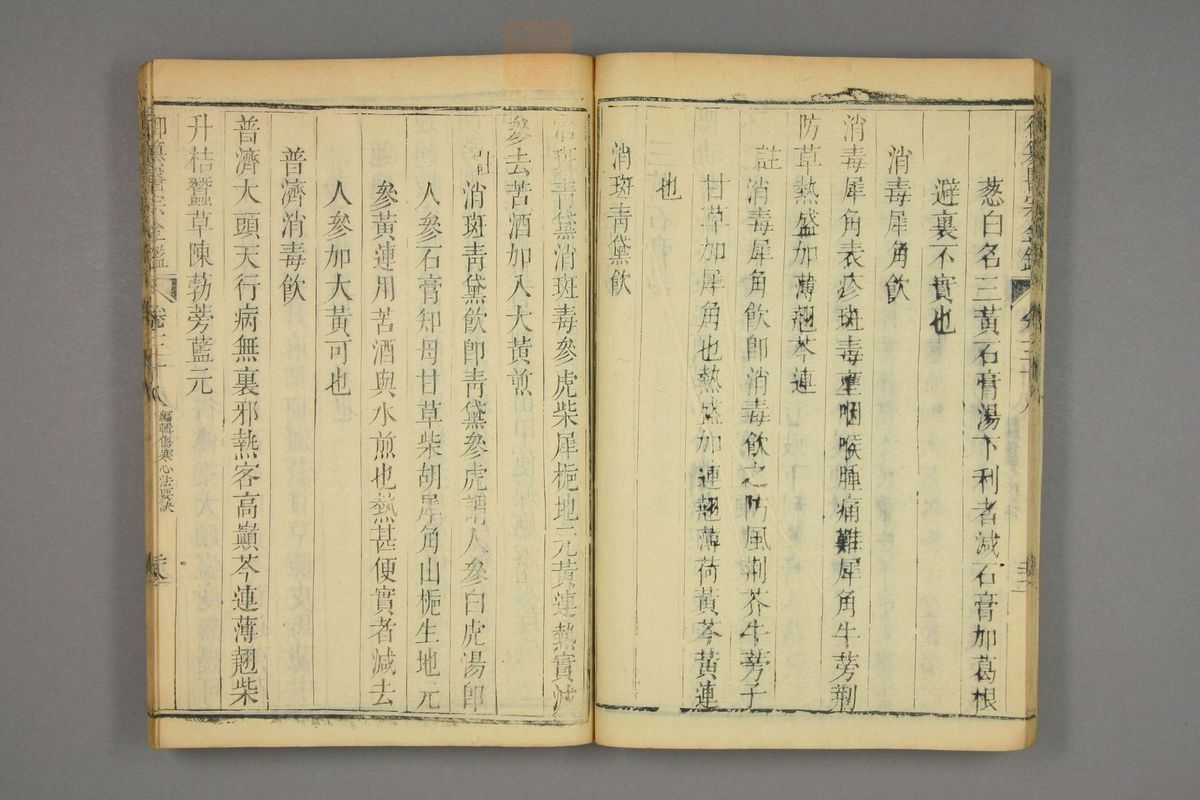 葱白名三黃石膏湯下利者減石膏加葛根
避裏不實也
消毒犀角飲
消毒犀角表疹斑毒壅咽喉腫痛難犀角牛蒡荆
防草熱盛加薄翹芩連
註
消毒犀角飲卽消毒飲之防風荆芥牛蒡子
甘草加犀角也熱盛加連翹薄荷黃芩黃連
也
消斑青黛飲
消斑青黛消斑毒參虎柴犀梔地元黃連熱實減
參去苦酒加入大黃煎
註
消斑青黛飲卽青黛參虎謂人參白虎湯卽
人參石膏知母甘草柴胡犀角山梔生地元
參黃連用苦酒與水煎也熱甚便實者減去
人參加大黃可也
普濟消毒飲
普濟大頭天行病無裏邪熱客高巔芩連薄翹柴
升桔蠶草陳勃蒡藍元
御纂醫宗金鑑
卷三十八
編輯傷寒心法要訣